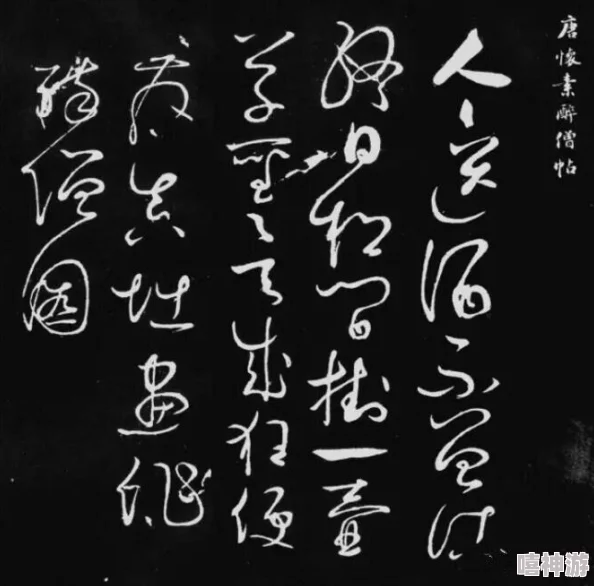 唐懷素醉僧帖
人〻送酒不曾沽
終日松間掛一壺
草聖成狂便
發真堪畫
醉僧圖
嘻神游